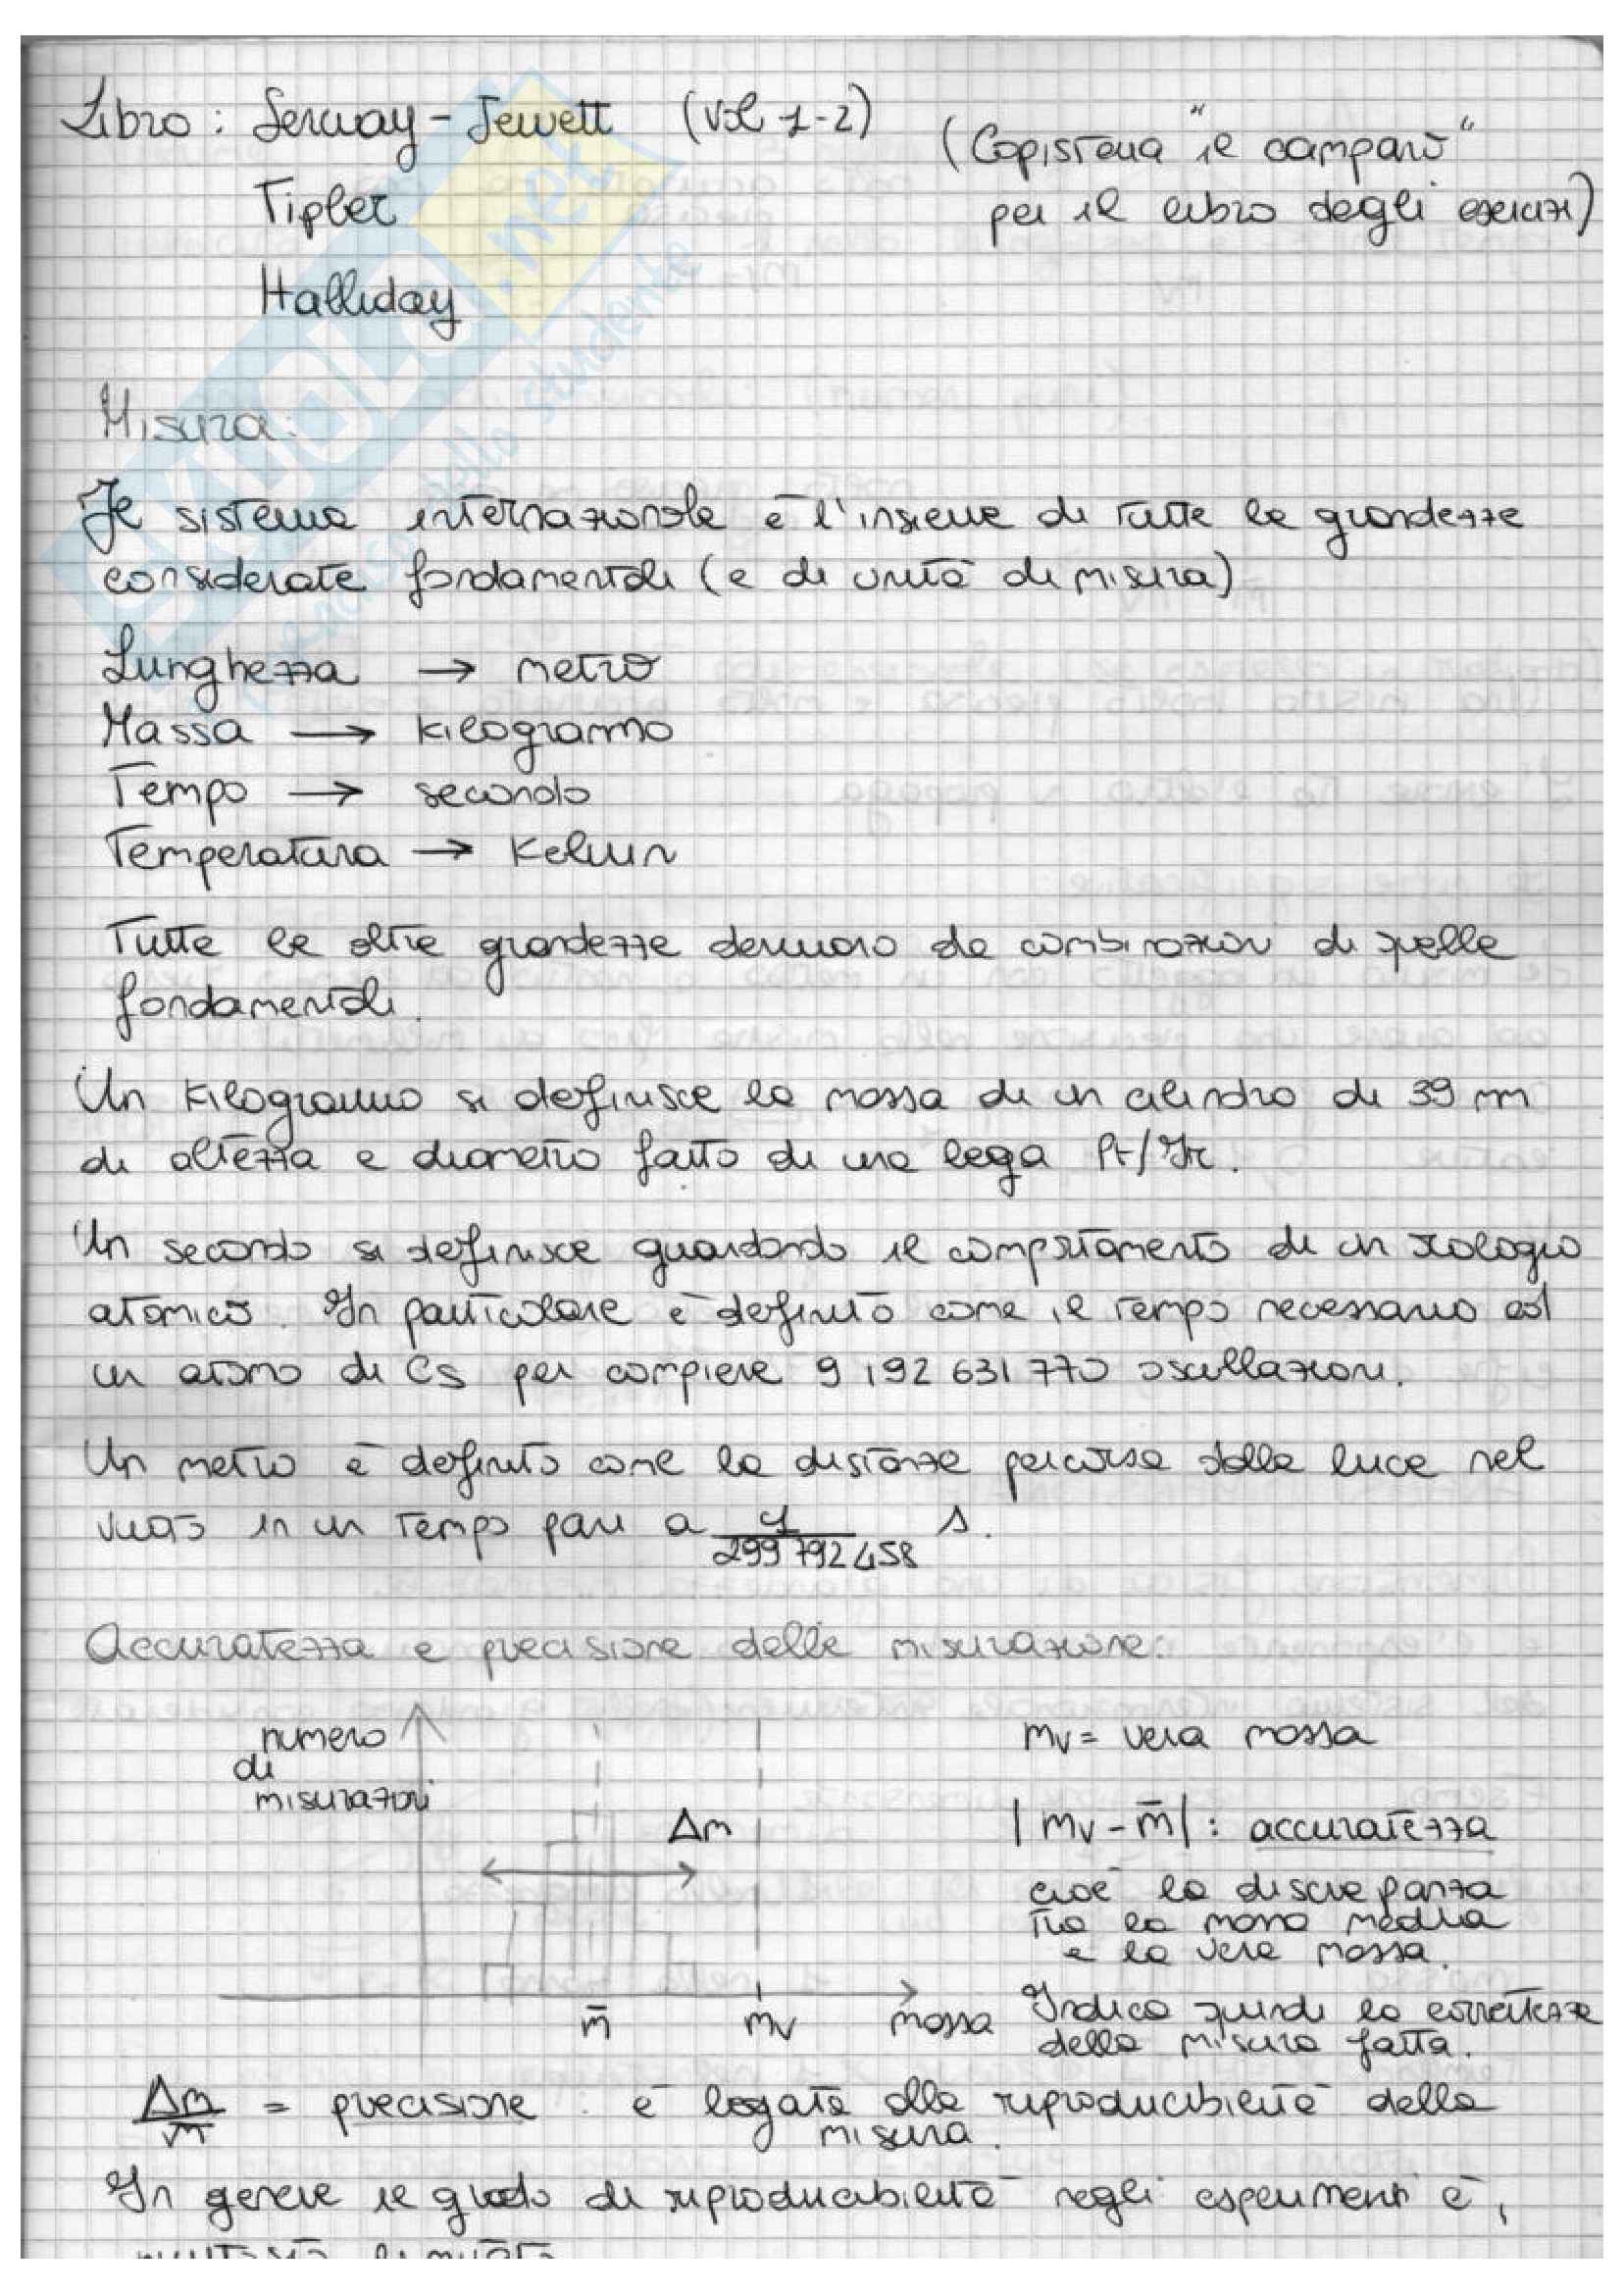 Libro: Serway-Jewett (Vol 1-2)
(Copisteria "il campano"
Tipler
per il libro degli esercizi)
Halliday
Misura:
Il sistema internazionale è l'insieme di tutte le grandezze
considerate fondamentali (e di unità di misura)
Lunghezza → metro
Massa → kilogrammo
Tempo → secondo
Temperatura → Kelvin
Tutte le altre grandezze derivano da combinazioni di quelle
fondamentali.
Un kilogrammo si definisce la massa di un cilindro di 39 mm
di altezza e diametro fatto di una lega Pt/Ir.
Un secondo si definisce guardando il comportamento di un orologio
atomico. In particolare è definito come il tempo necessario ad
un atomo di Cs per compiere 9 192 631 770 oscillazioni.
Un metro è definito come la distanza percorsa dalla luce nel
vuoto in un tempo pari a 1/299 792 458 s.
Accuratezza e precisione delle misurazione:
numero
di
misurazioni
Δm
m̄
mv
massa
mv = vera massa
|mv - m̄| : accuratezza
cioè la discrepanza
tra la massa media
e la vera massa.
Indica quindi la correttezza
della misura fatta.
Δm/m̄ = precisione : è legata alla riproducibilità della
misura.
In genere il grado di riproducibilità negli esperimenti è,
SKUOLA.net